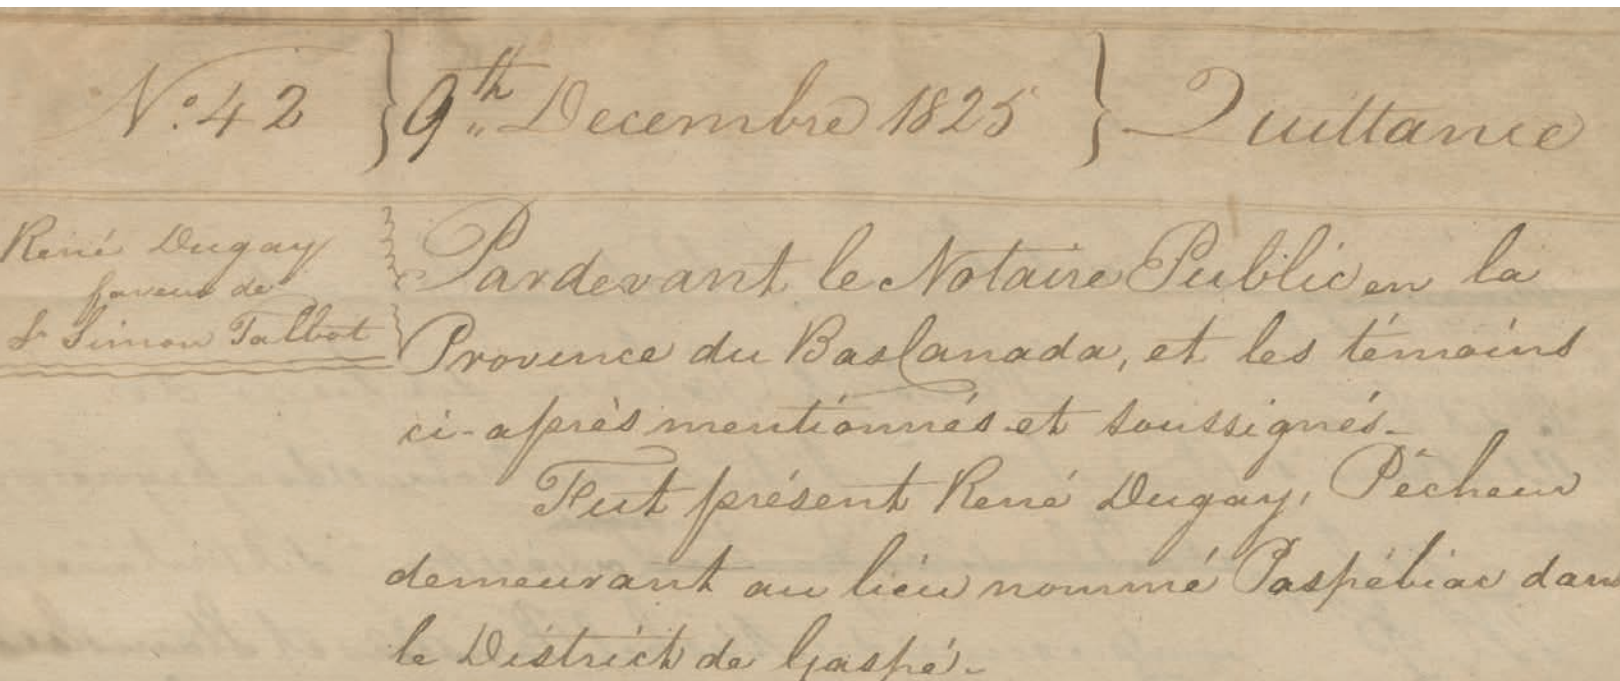 No. 42 } 9th Decembre 1825 } Quittance
René Dugay
faveur de
Sr Simon Talbot
Pardevant le Notaire Public en la
Province du Bas Canada, et les témoins
ci-après mentionnés et soussignés.
Fut présent René Dugay, Pêcheur
demeurant au lieu nommé Paspébiac dans
le District de Gaspé.